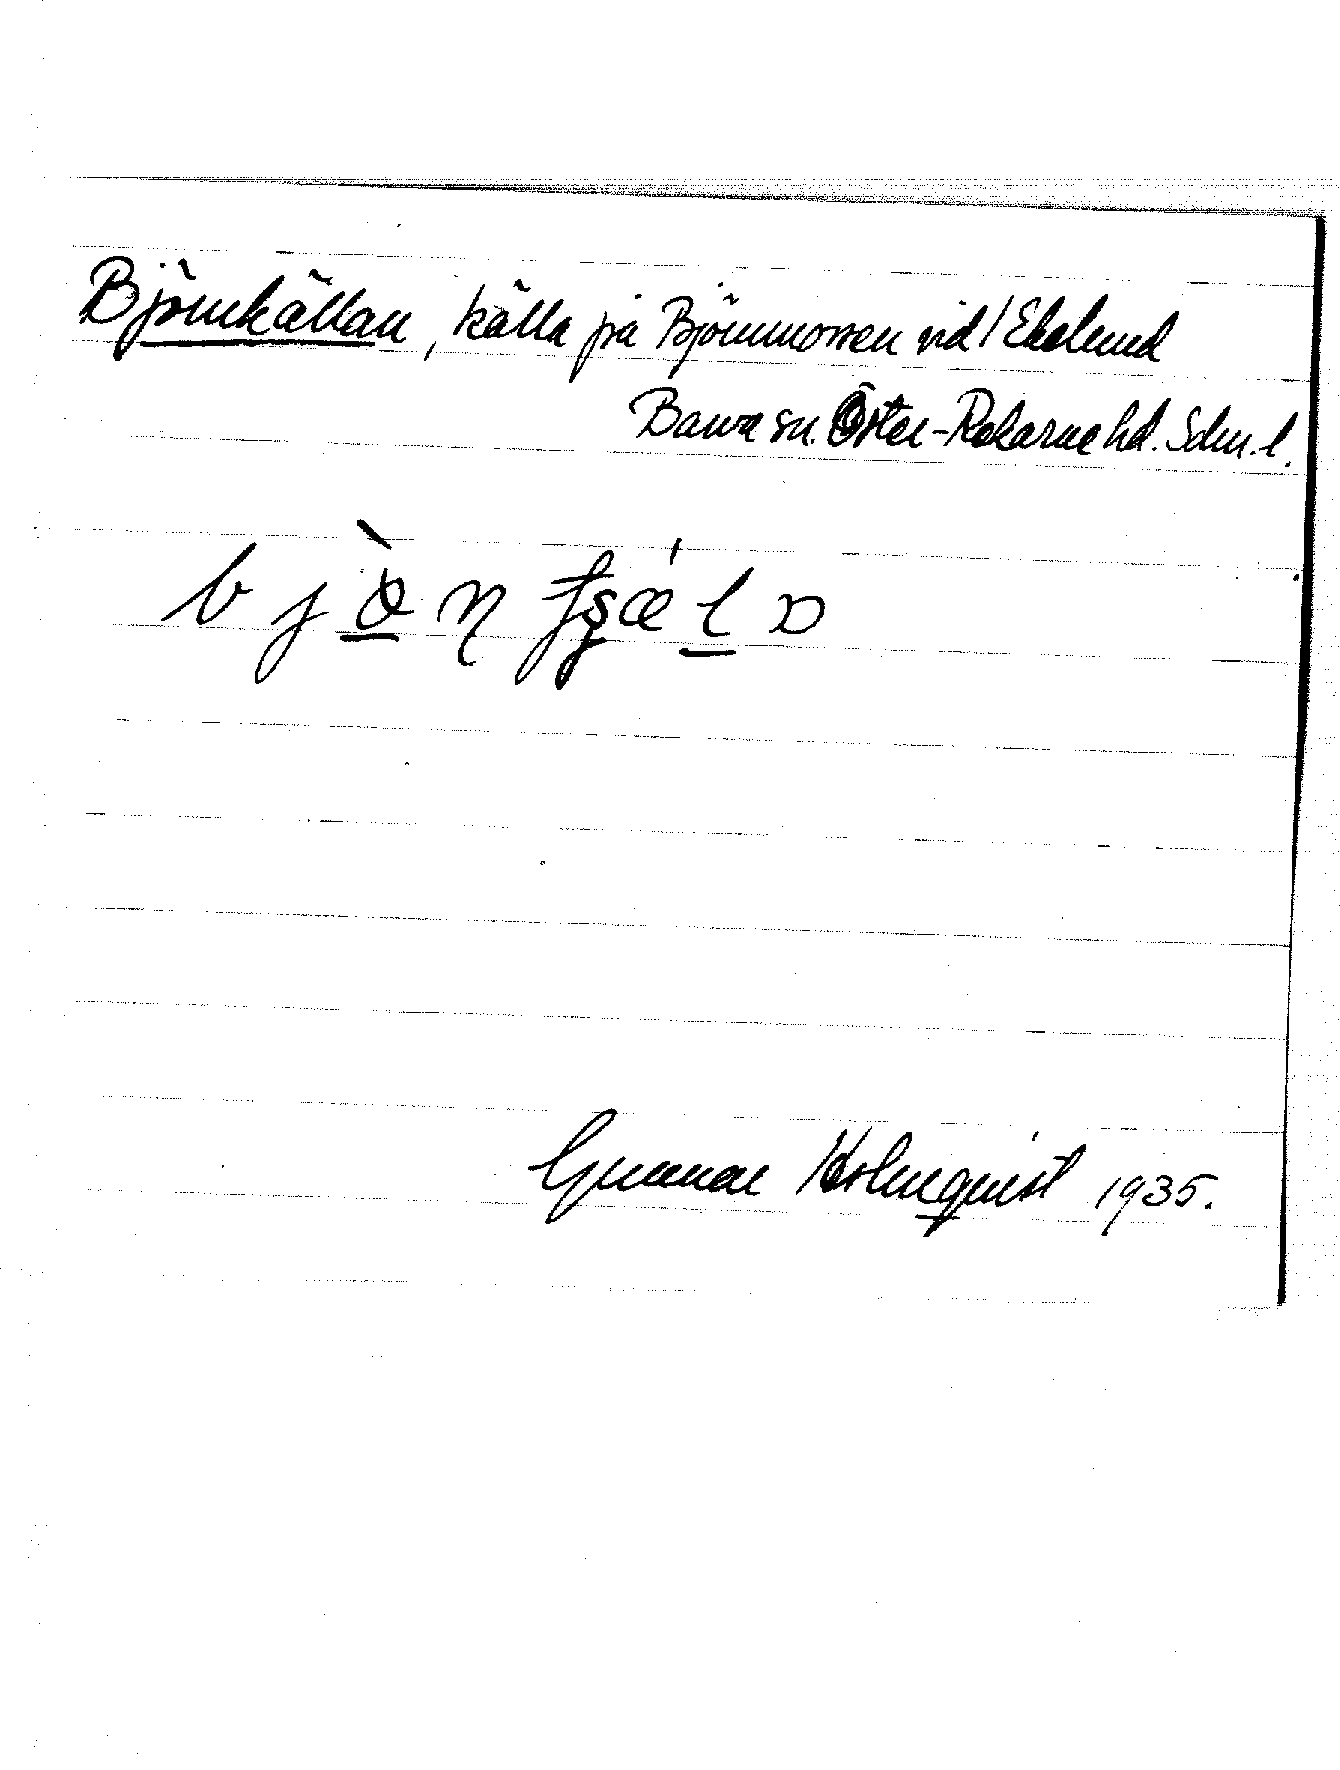 Björnkällan, källa på Björnmossen vid / Ekelund
Barva sn. Öster-Rekarne hd. Sdm. l.
Gunnar Holmquist 1935.